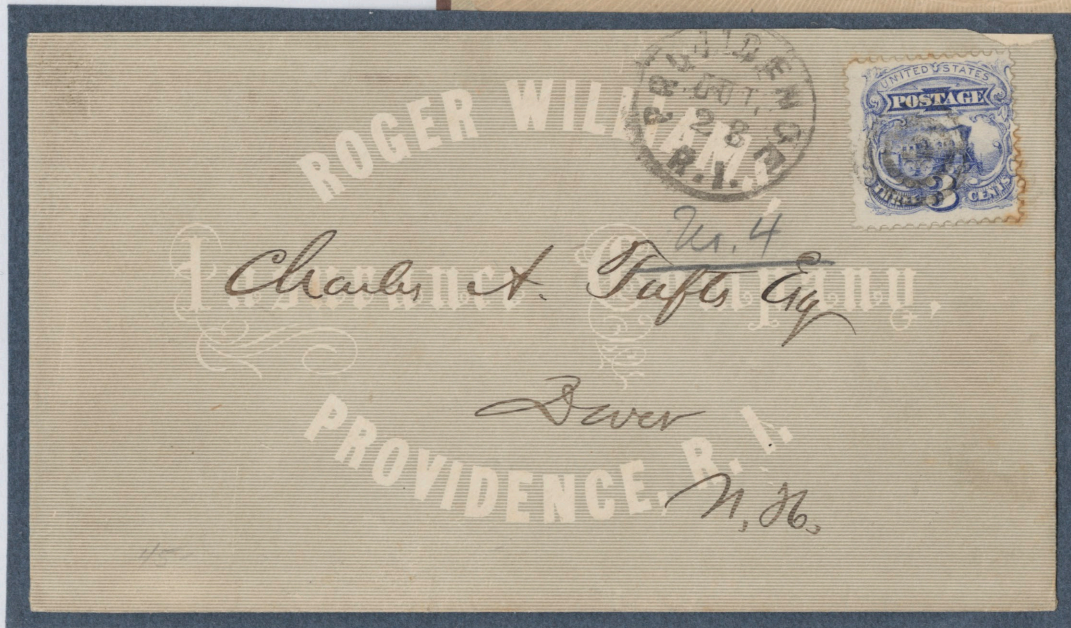 ROGER WILLIAMS
Insurance Company,
PROVIDENCE, R. I.
PROVIDENCE
OCT
28
R.I.
UNITED STATES
POSTAGE
THREE 3 CENTS
No. 4
Charles A. Tufts Esq
Dover
N. H.
45